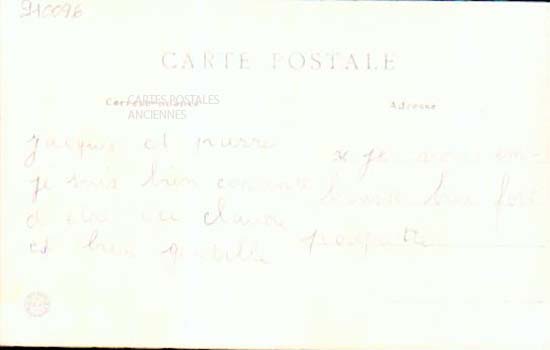 910096
CARTE POSTALE
Correspondance
Adresse
CARTES POSTALES
ANCIENNES
jacques et pierre
je suis bien contente
d etre ou claude
est bien gentille
x je vous em-
brasse bien fort
poupette